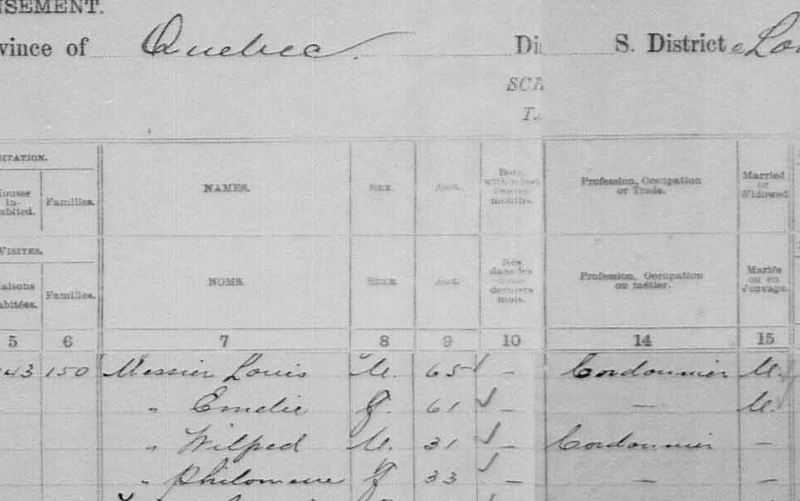 NSEMENT.
vince of Quebec Di S. District Lo
SCH
T.
ITATION. NAMES. SEX. AGE. Born within last twelve months. Profession, Occupation or Trade. Married or Widowed
Houses in-habited. Families.
VISITES. NOMS. SEXE. AGE. Nés dans les douze derniers mois. Profession, Occupation ou métier. Mariés ou en veuvage.
Maisons habitées. Families.
5 6 7 8 9 10 14 15
43 150 Messier Louis M. 65 – Cordonnier M.
" Emelie F. 61 – – M.
" Wilfred M. 31 – Cordonnier –
" Philomene F 33 – – –